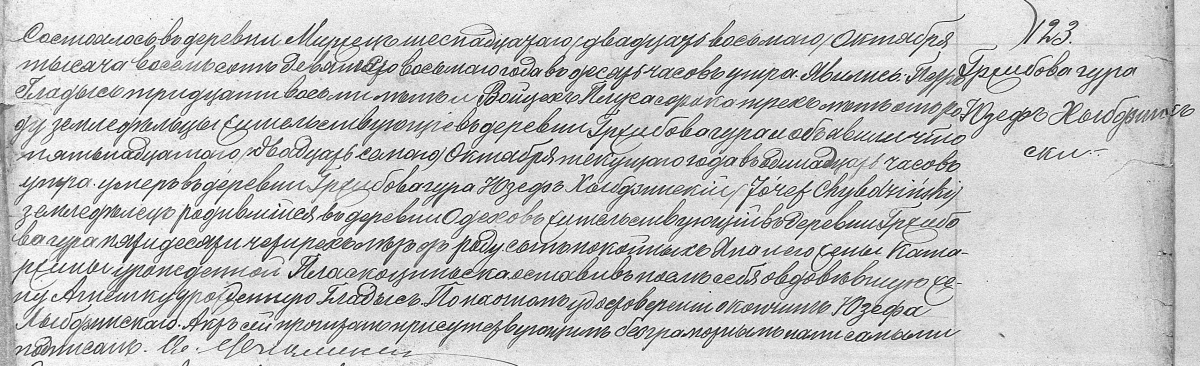 123
Гржибова гура
Юзефъ Хлыбдзин
ски
Состоялось въ деревни Миржецъ шеснадцатаго / двадцать восьмаго / Октября
тысяча восемьсотъ девяносто восьмаго года въ десять часовъ утра. Явились Петръ
Гладысь тридцати восьми лѣтъ и Войцехъ сорока трехъ лѣтъ отъ ро
ду земледѣльцы жительствующіе въ деревни Гржибова гура и объявили что
пятьнадцатого / двадцать седмого / Октября текущаго года въ одинадцать часовъ
утра умеръ въ деревни Гржибова гура Юзефъ Хлыбдзинскій / Józef Chybdziński /
земледѣлецъ родившійся въ деревни Одеховъ жительствующій въ деревни Гржибо
ва гура пятидесяти четырехъ лѣтъ отъ роду сынъ покойныхъ Яна и его жены Ката
ржины урожденной оставивъ послѣ себя овдовѣвшую же
ну Агнешку урожденную Гладысь. По настоящемъ удостовереніи о кончинѣ Юзефа
Хлыбдзинскаго. Актъ сей прочитанъ присутствующимъ безграмотнымъ нами самыми
подписанъ.